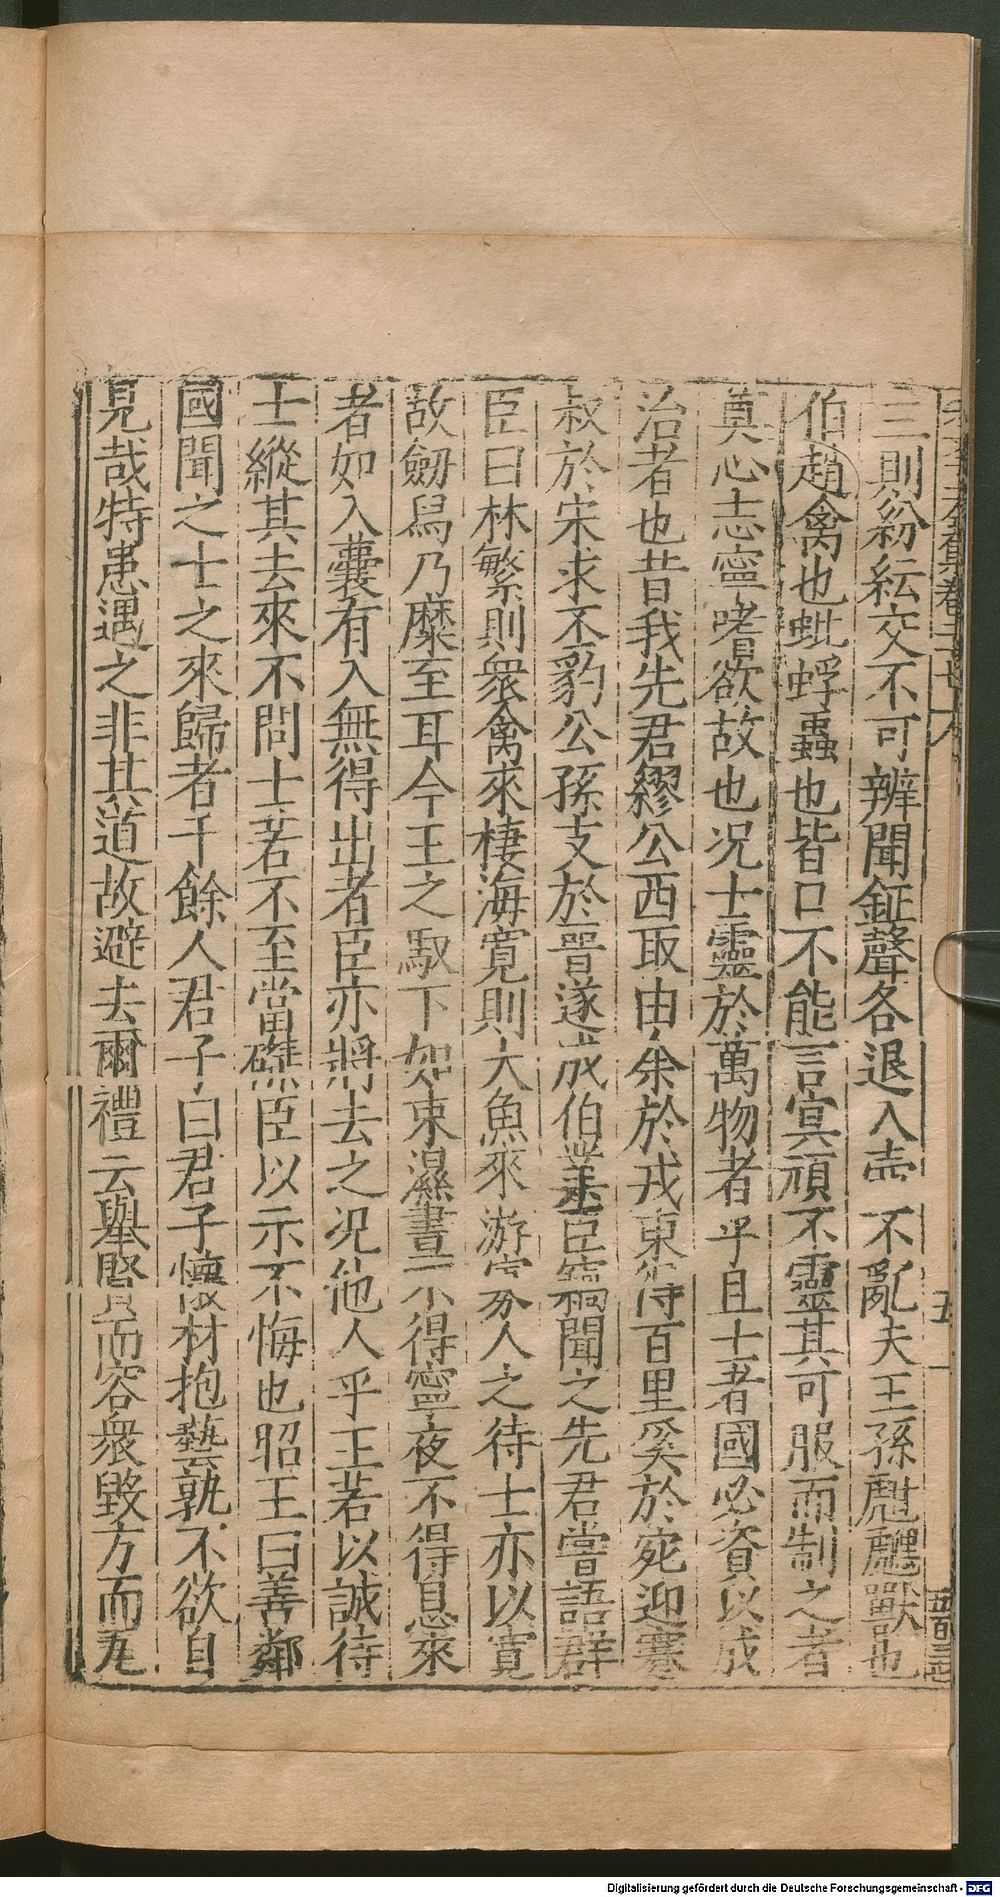 三則紛紜交不可辨聞鉦聲各退入壺不亂夫王孫獸也
伯趙禽也蚍蜉蟲也皆口不能言冥頑不靈其可服而制之者
奠心志寧嗜欲故也况士靈於萬物者乎且士者國必資以成
治者也昔我先君繆公西取由余於戎東得百里奚於宛迎蹇
叔於宋求丕豹公孫支於晉遂成伯業臣竊聞之先君嘗語群
臣曰林繁則衆禽來棲海寬則大魚來游寡人之待士亦以寬
故劒舄乃麋至耳今王之馭下如束濕晝不得寧夜不得息來
者如入囊有入無得出者臣亦將去之况他人乎王若以誠待
士縱其去來不問士若不至當磔臣以示不悔也昭王曰善鄰
國聞之士之來歸者千餘人君子曰君子懷材抱藝孰不欲自
見哉特患遇之非其道故避去爾禮云舉賢而容衆毀方而
五
Digitalisierung gefördert durch die Deutsche Forschungsgemeinschaft - DFG